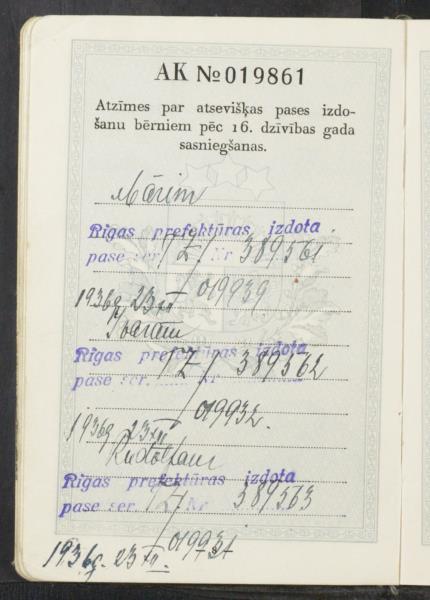 AK № 019861
Atzīmes par atsevišķas pases izdo-
šanu bērniem pēc 16. dzīvības gada
sasniegšanas.
Mārim
Rīgas prefektūras izdota
pase ser. TZ / Nr 389561
019939
1936g 23 XII
Ivaram
Rīgas prefektūras izdota
pase ser. TZ / Nr 389562
019932.
1936g 23 XII
Rudolfam
Rīgas prefektūras izdota
pase ser. TZ Nr 389563
/019931
1936g. 23 XII.